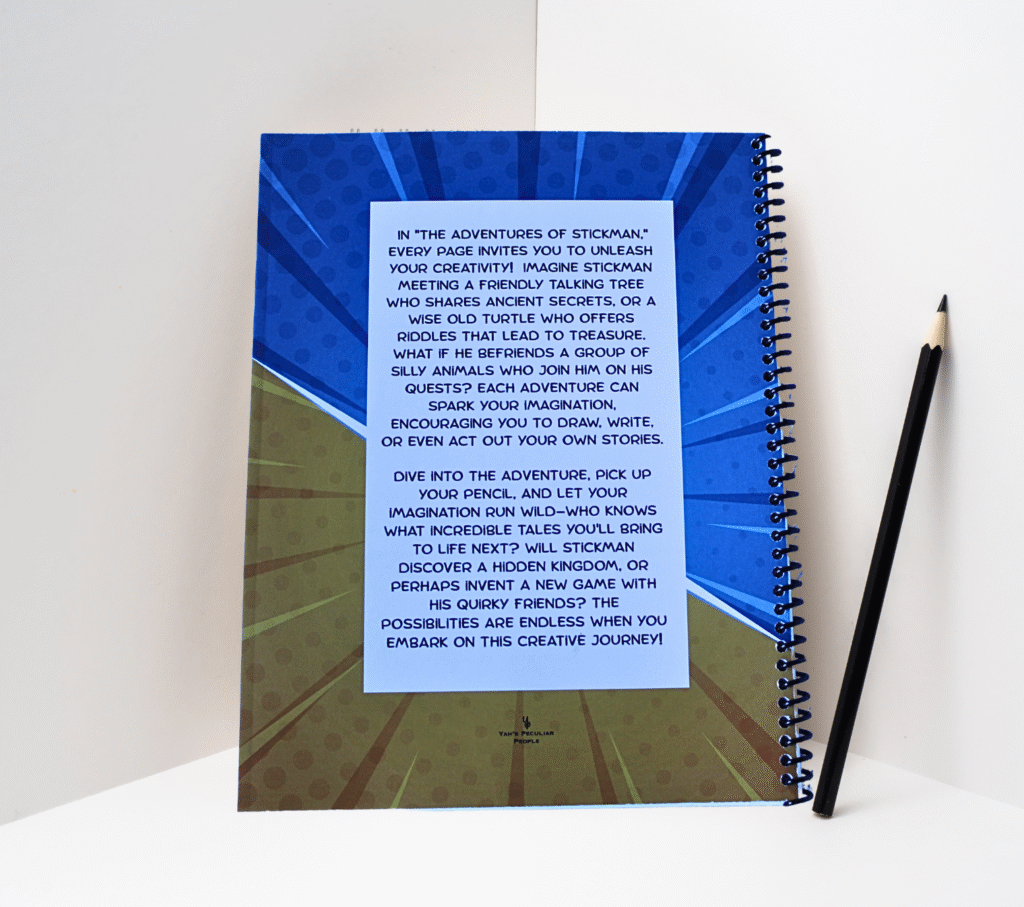 IN "THE ADVENTURES OF STICKMAN,"
EVERY PAGE INVITES YOU TO UNLEASH
YOUR CREATIVITY! IMAGINE STICKMAN
MEETING A FRIENDLY TALKING TREE
WHO SHARES ANCIENT SECRETS, OR A
WISE OLD TURTLE WHO OFFERS
RIDDLES THAT LEAD TO TREASURE.
WHAT IF HE BEFRIENDS A GROUP OF
SILLY ANIMALS WHO JOIN HIM ON HIS
QUESTS? EACH ADVENTURE CAN
SPARK YOUR IMAGINATION,
ENCOURAGING YOU TO DRAW, WRITE,
OR EVEN ACT OUT YOUR OWN STORIES.
DIVE INTO THE ADVENTURE, PICK UP
YOUR PENCIL, AND LET YOUR
IMAGINATION RUN WILD—WHO KNOWS
WHAT INCREDIBLE TALES YOU'LL BRING
TO LIFE NEXT? WILL STICKMAN
DISCOVER A HIDDEN KINGDOM, OR
PERHAPS INVENT A NEW GAME WITH
HIS QUIRKY FRIENDS? THE
POSSIBILITIES ARE ENDLESS WHEN YOU
EMBARK ON THIS CREATIVE JOURNEY!
YAH'S PECULIAR
PEOPLE